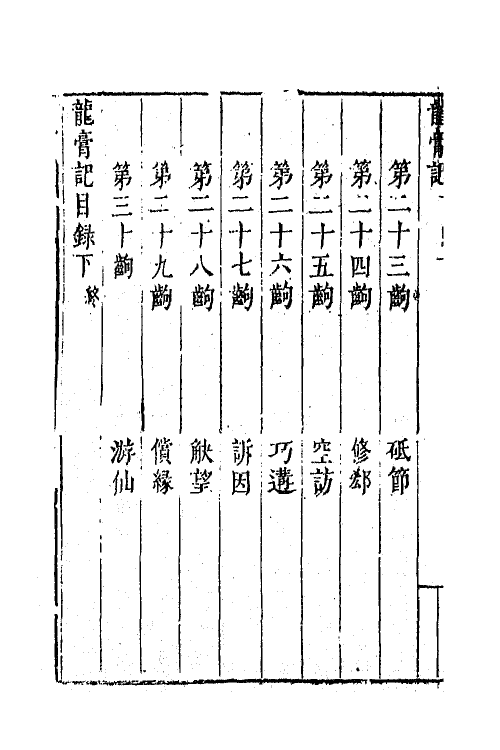 第二十三齣　砥節
第二十四齣　修郄
第二十五齣　空訪
第二十六齣　巧遘
第二十七齣　訴因
第二十八齣　觖望
第二十九齣　償緣
第三十齣　游仙
龍膏記目錄下終
龍膏記